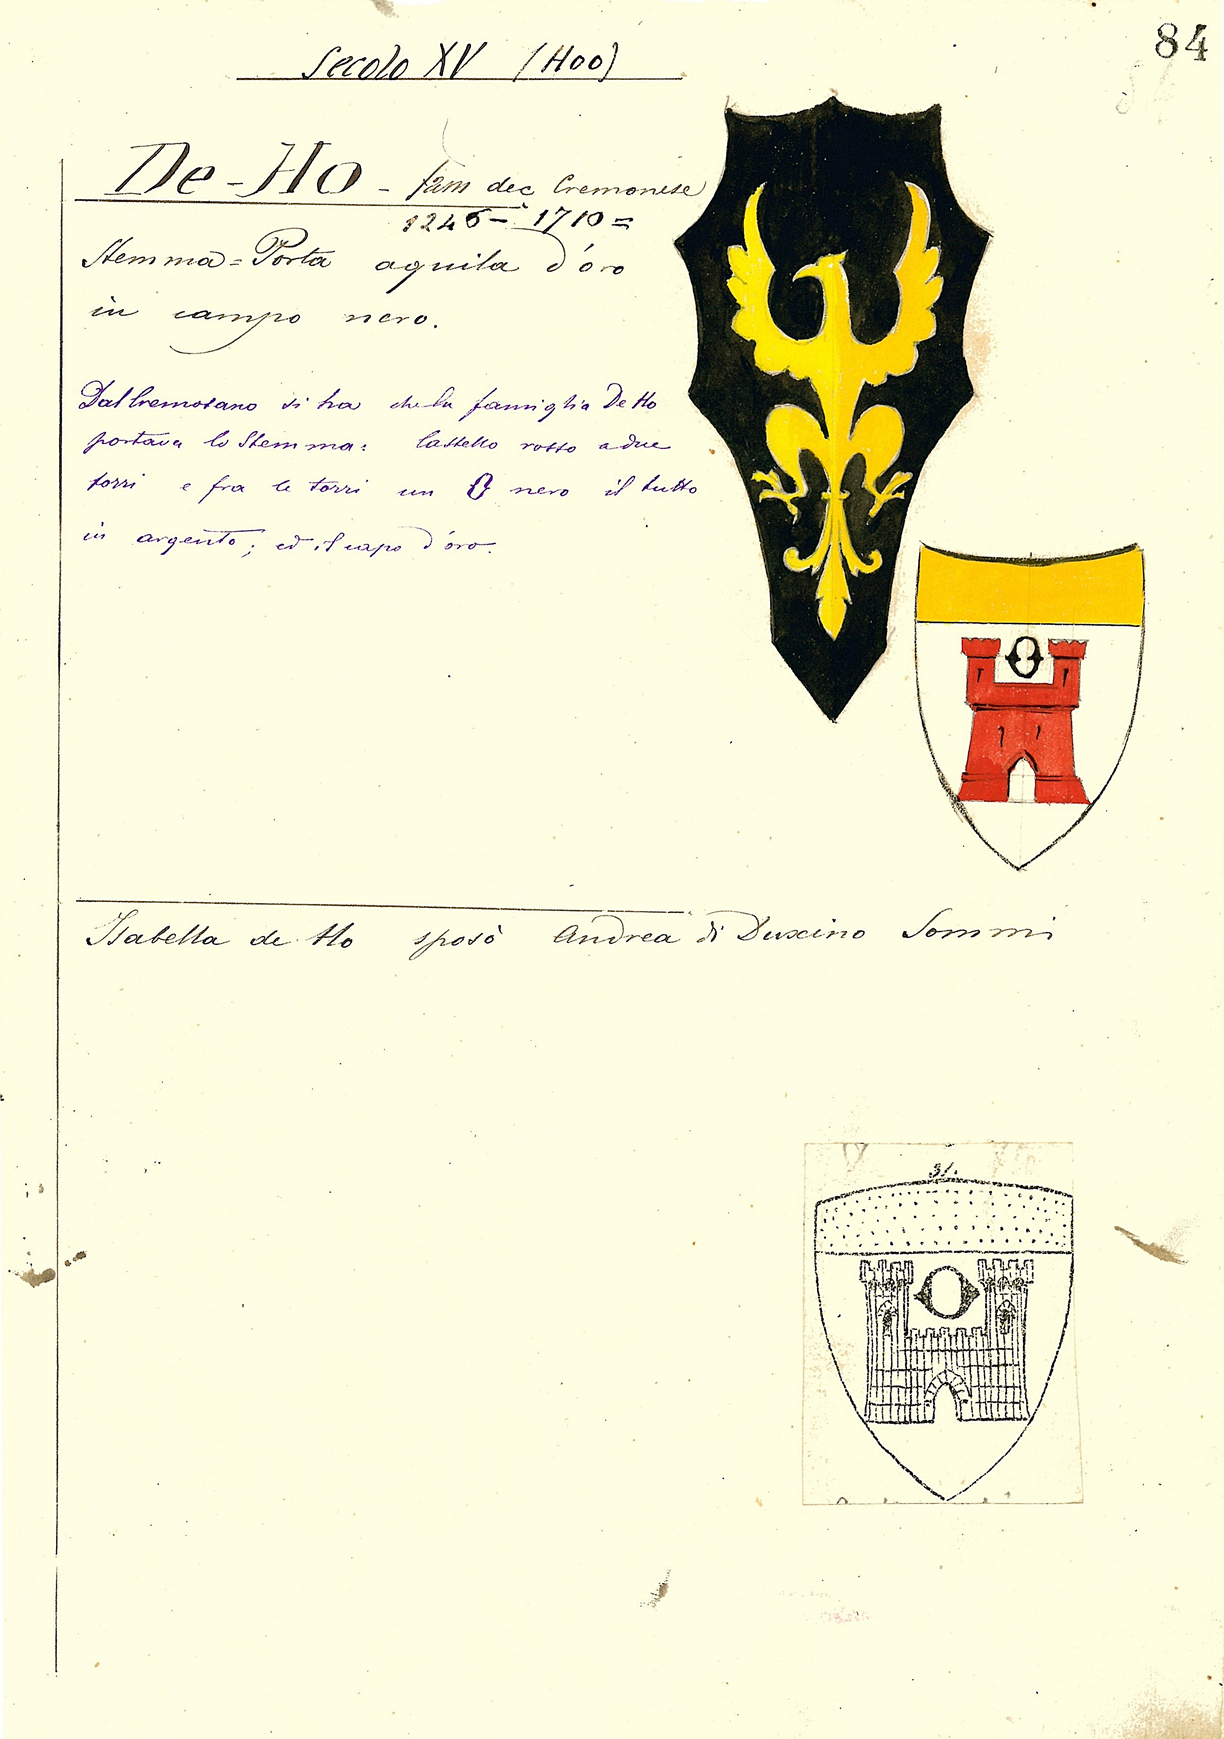 84
Secolo XV (Hoo)
De-Ho - fam dec Cremonese
1246 - 1710 =
Stemma = Porta aquila d'oro
in campo nero.
Dal Cremosano si ha che la famiglia De Ho
portava lo Stemma: Castello rosso a due
torri e fra le torri un O nero il tutto
in argento; ed il capo d'oro.
O
Isabella de Ho sposò Andrea di Duxino Sommi
31.
O